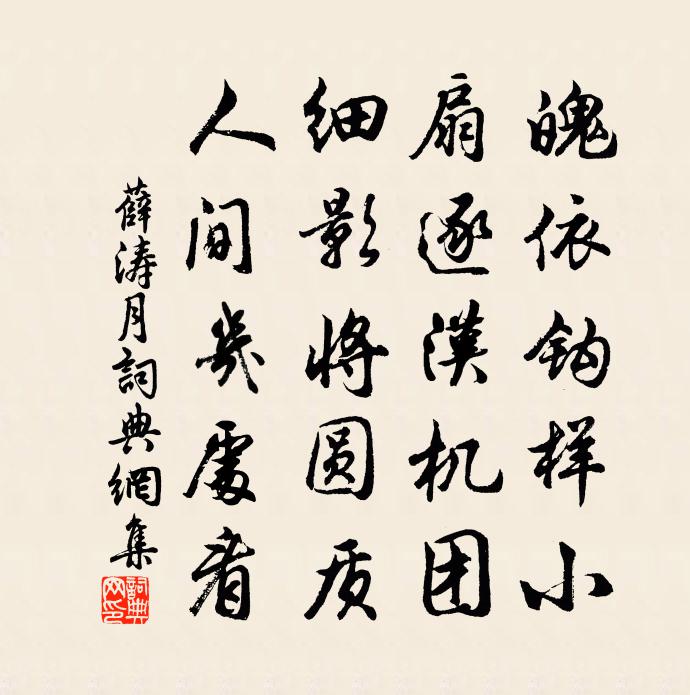 魄依钩样小
扇逐漢机团
细影将圆质
人间幾處看
薛濤月詞典網集
詞典网印